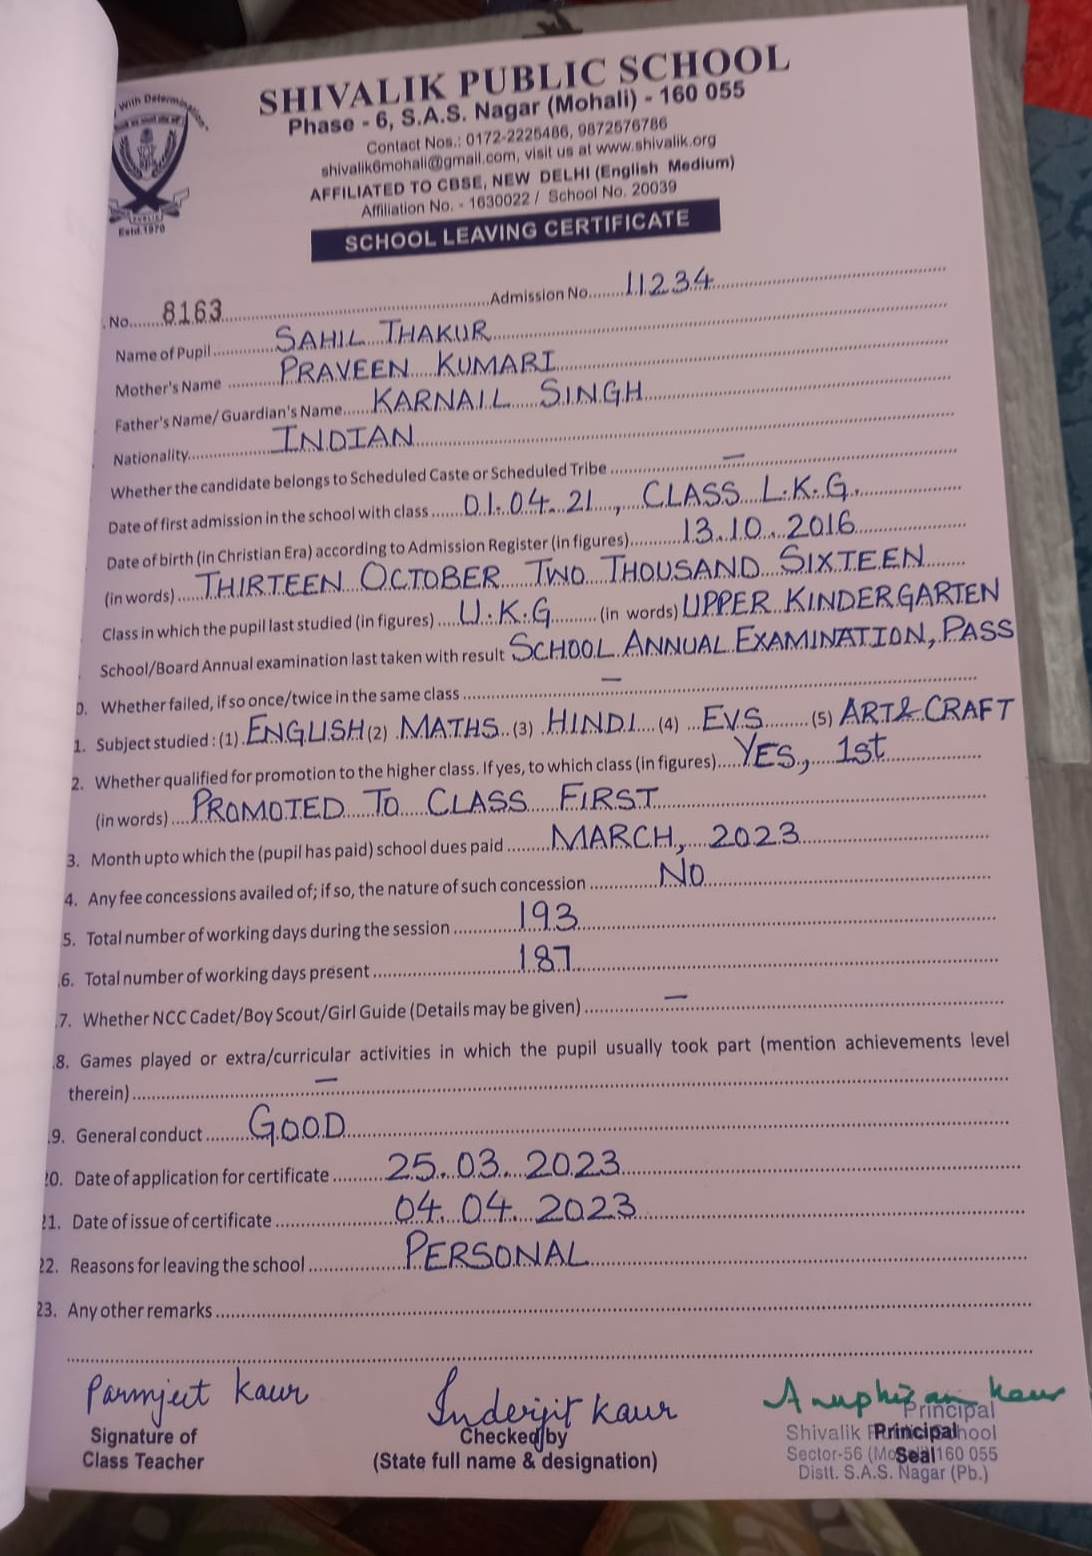 With Determination
SHIVALIK PUBLIC SCHOOL
Phase - 6, S.A.S. Nagar (Mohali) - 160 055
Contact Nos.: 0172-2225486, 9872576786
shivalik6mohali@gmail.com, visit us at www.shivalik.org
AFFILIATED TO CBSE, NEW DELHI (English Medium)
Affiliation No. - 1630022 / School No. 20039
Estd. 1970
SCHOOL LEAVING CERTIFICATE
No. 8163 Admission No. 11234
Name of Pupil SAHIL THAKUR
Mother's Name PRAVEEN KUMARI
Father's Name/ Guardian's Name KARNAIL SINGH
Nationality INDIAN
Whether the candidate belongs to Scheduled Caste or Scheduled Tribe —
Date of first admission in the school with class 01.04.21, CLASS L.K.G.
Date of birth (in Christian Era) according to Admission Register (in figures) 13.10.2016
(in words) THIRTEEN OCTOBER TWO THOUSAND SIXTEEN
Class in which the pupil last studied (in figures) U.K.G (in words) UPPER KINDERGARTEN
School/Board Annual examination last taken with result SCHOOL ANNUAL EXAMINATION, PASS
0. Whether failed, if so once/twice in the same class —
1. Subject studied : (1) ENGLISH (2) MATHS (3) HINDI (4) EVS (5) ART& CRAFT
2. Whether qualified for promotion to the higher class. If yes, to which class (in figures) YES, 1st
(in words) PROMOTED TO CLASS FIRST
3. Month upto which the (pupil has paid) school dues paid MARCH, 2023
4. Any fee concessions availed of; if so, the nature of such concession NO
5. Total number of working days during the session 193
6. Total number of working days present 187
7. Whether NCC Cadet/Boy Scout/Girl Guide (Details may be given) —
8. Games played or extra/curricular activities in which the pupil usually took part (mention achievements level
therein) —
9. General conduct GOOD
20. Date of application for certificate 25.03.2023
21. Date of issue of certificate 04.04.2023
22. Reasons for leaving the school PERSONAL
23. Any other remarks
Parmjeet Kaur Inderjit Kaur Kaur
Principal
Signature of Checked by Principal
Shivalik
Class Teacher (State full name & designation) Seal
Sector-56 160 055
Distt. S.A.S. Nagar (Pb.)